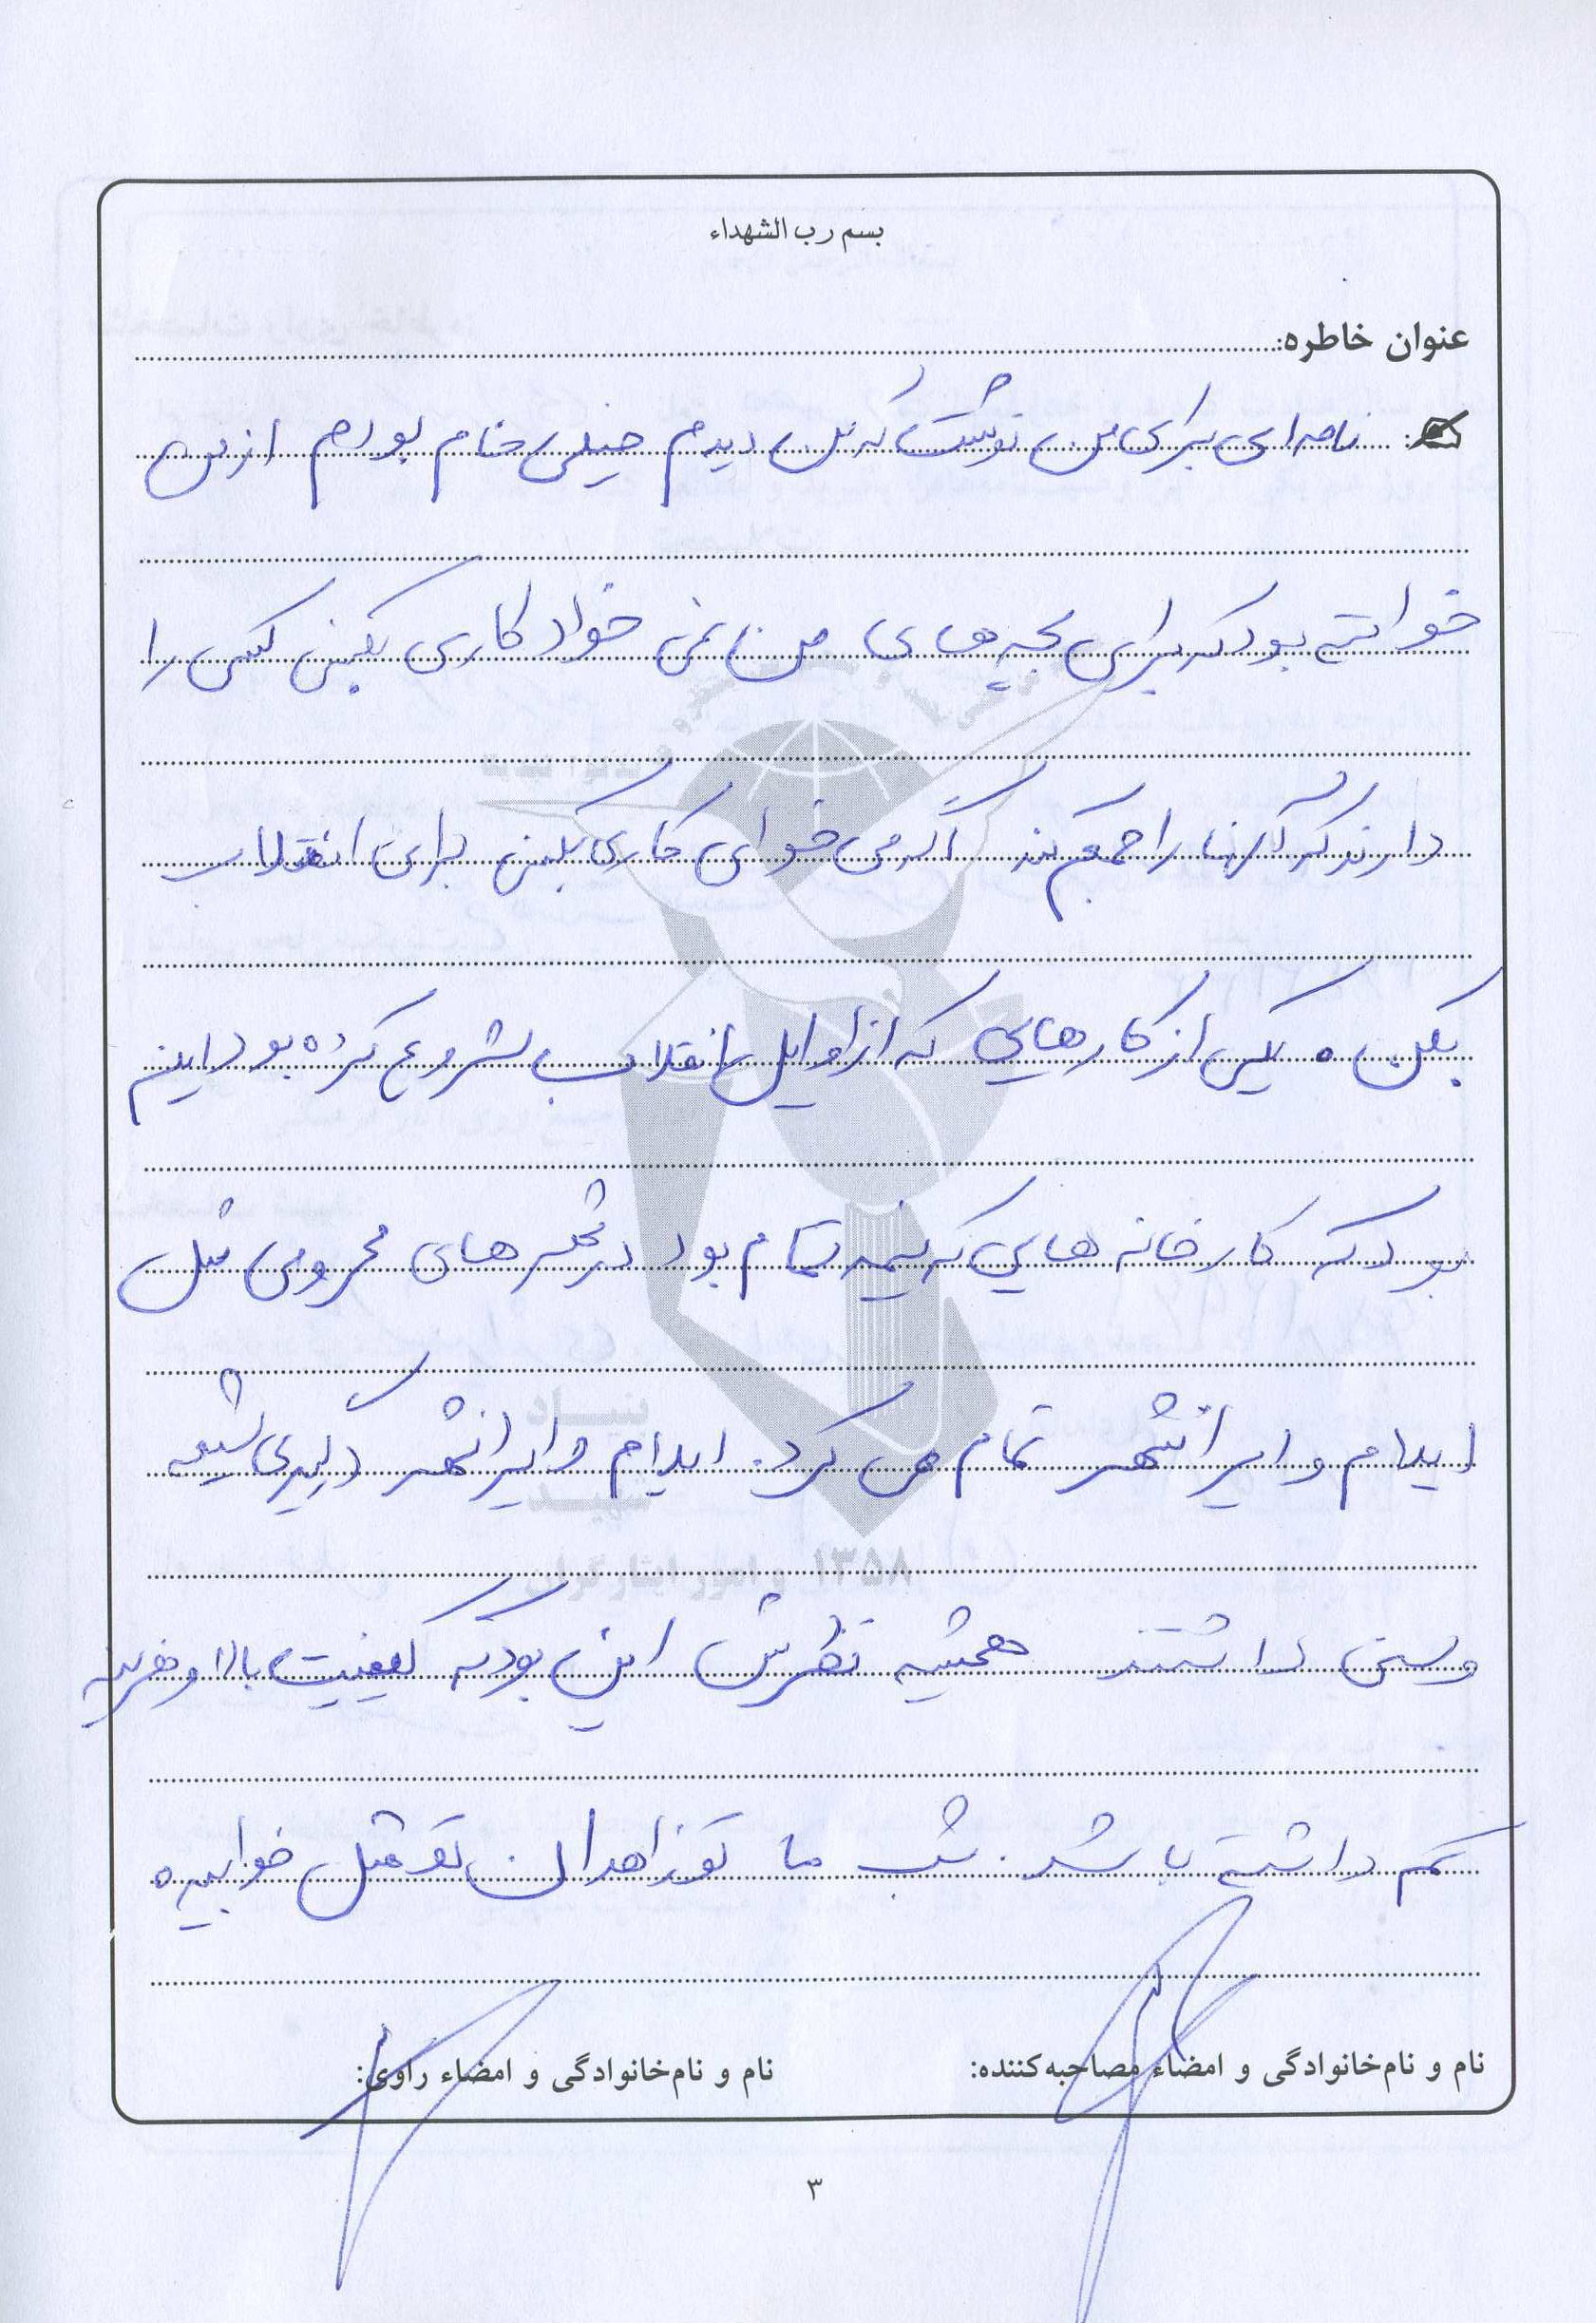 بسم رب الشهداء
عنوان خاطره:
نامه ای برای من نوشت که من دیدم خیلی خام بودم از من
خواسته بود که برای بچه های من نمی خواد کاری بکنی کسی را
دارند که آنها را جمع کند اگر می خوای کاری بکنی برای انقلاب
بکن ۰ یکی از کارهایی که از اوایل انقلاب شروع کرده بود این
بود که کارخانه هایی که نیمه تمام بود در شهرهای محرومی مثل
ایلام و ایرانشهر تمام می کرد. ایلام و ایرانشهر درگیری شیعه
وسنی داشتند همیشه نظرش این بود که کیفیت بالا و هزینه
کم داشته باشد. شب ما تو زاهدان تو هتل خوابیده
بنیاد
شهید
و امور ایثارگران ۱۳۵۸
نام و نام‌خانوادگی و امضاء مصاحبه‌کننده:
نام و نام‌خانوادگی و امضاء راوی:
۳